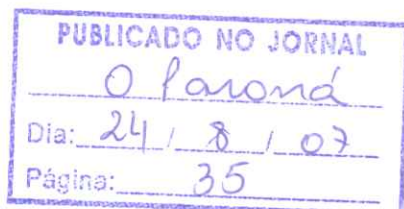 PUBLICADO NO JORNAL
O Paraná
Dia: 24 / 8 / 07
Página: 35